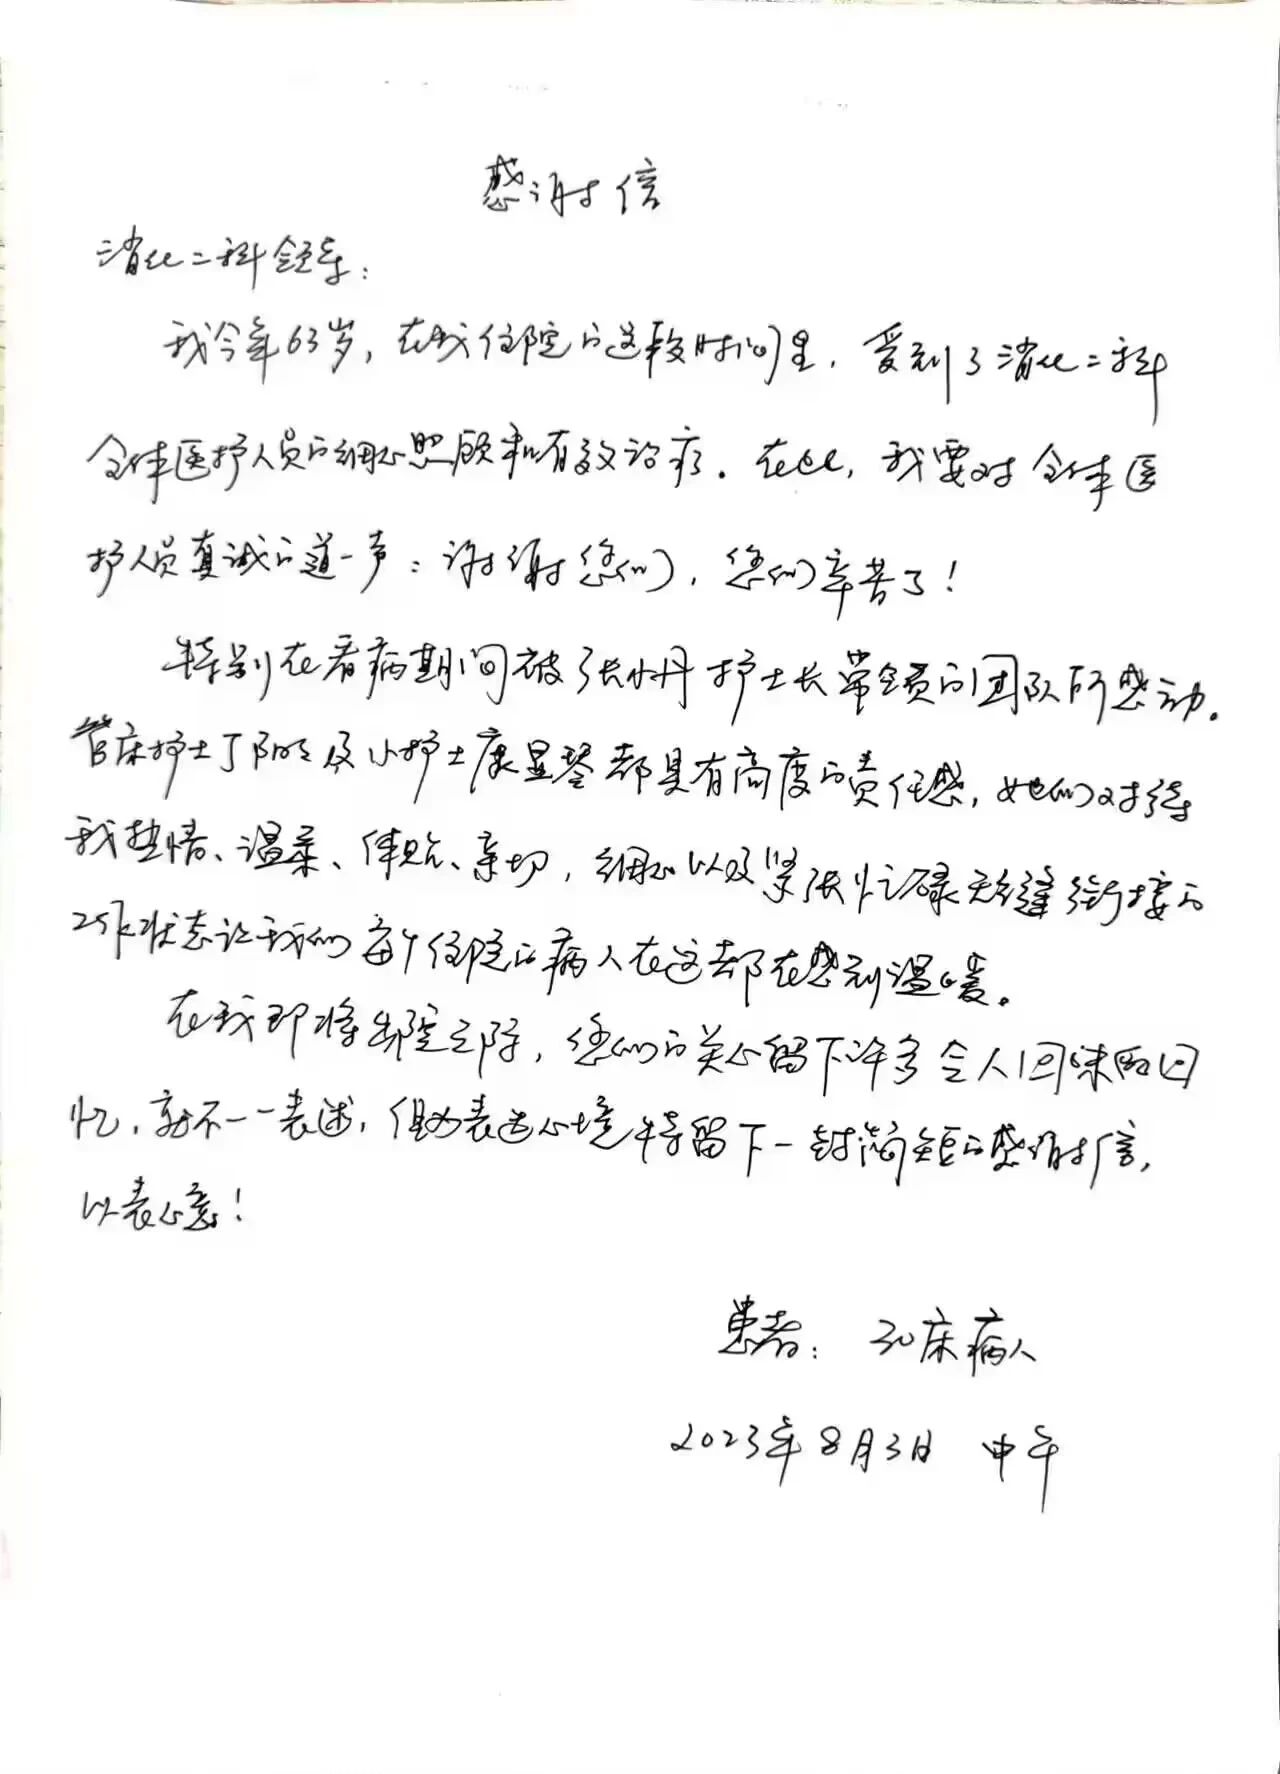 感谢信
消化二科领导：
我今年63岁，在我住院的这段时间里，受到了消化二科
全体医护人员的细心照顾和有效治疗。在此，我要对全体医
护人员真诚的道一声：谢谢您们，您们辛苦了！
特别在看病期间被张小丹护士长带领的团队所感动。
管床护士丁阳及小护士康显琴都具有高度的责任感，她们对待
我热情、温柔、体贴、亲切，细心以及紧张忙碌无缝衔接的
工作状态让我们每个住院的病人在这都在感到温暖。
在我即将出院之际，您们的关心留下许多令人回味的回
忆，就不一一表述，但为表达心境特留下一封简短的感谢信，
以表心意！
患者：30床病人
2023年8月3日 中午